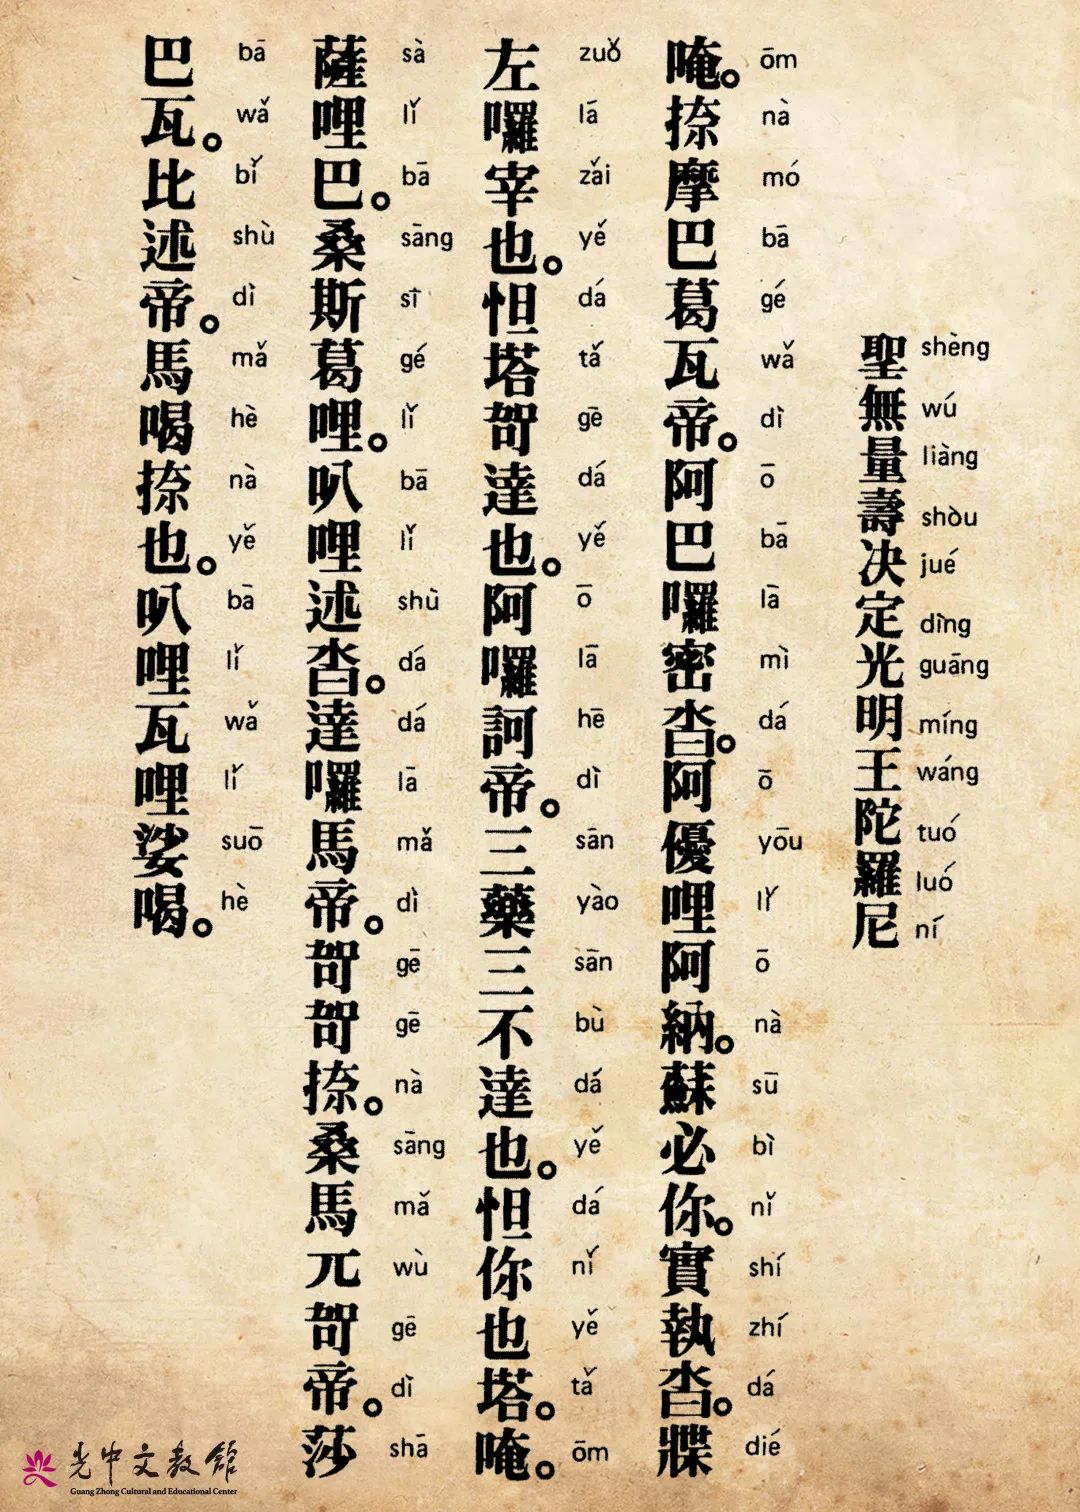 聖無量壽决定光明王陀羅尼
shèng wú liàng shòu jué dìng guāng míng wáng tuó luó ní
唵。捺摩巴葛瓦帝。阿巴囉密沓。阿優哩阿納。蘇必你。實執沓。牒
ōm nà mó bā gé wǎ dì ō bā lā mì dá ō yōu lǐ ō nà sū bì nǐ shí zhí dá dié
左囉宰也。怛塔哿達也。阿囉訶帝。三藥三不達也。怛你也塔。唵。
zuǒ lá zǎi yě dá tǎ gē dá yě ō lā hē dì sān yào sān bù dá yě dá nǐ yě tǎ ōm
薩哩巴。桑斯葛哩。叭哩述沓。達囉馬帝。哿哿捺。桑馬兀哿帝。莎
sà lǐ bā sāng sī gé lǐ bā lǐ shù dá dá lā mǎ dì gē gē nà sāng mǎ wù gē dì shā
巴瓦。比述帝。馬喝捺也。叭哩瓦哩娑喝。
bā wǎ bǐ shù dì mǎ hè nà yě bā lǐ wǎ lǐ suō hè
光中文教館
Guang Zhong Cultural and Educational Center